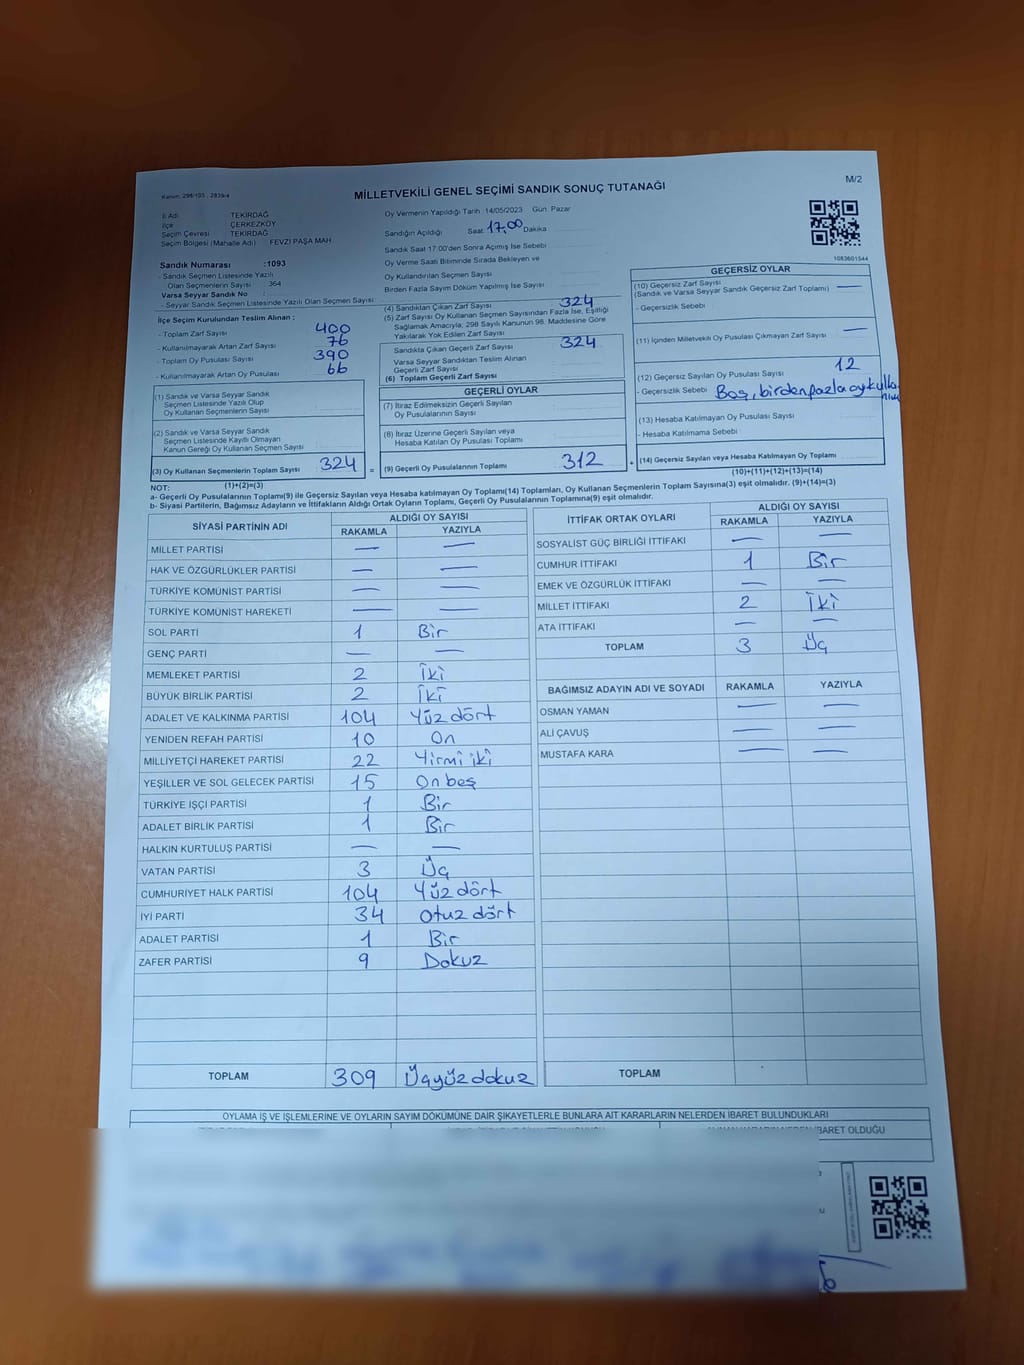 Kanun: 298/105 , 2839/4
MİLLETVEKİLİ GENEL SEÇİMİ SANDIK SONUÇ TUTANAĞI
M/2
İl Adı TEKİRDAĞ
İlçe ÇERKEZKÖY
Seçim Çevresi TEKİRDAĞ
Seçim Bölgesi (Mahalle Adı) FEVZİ PAŞA MAH
Oy Vermenin Yapıldığı Tarih :14/05/2023 Gün: Pazar
Sandığın Açıldığı Saat 17,00 Dakika
Sandık Saat 17:00'den Sonra Açımış İse Sebebi
Oy Verme Saati Bitiminde Sırada Bekleyen ve
Oy Kullandırılan Seçmen Sayısı
Birden Fazla Sayım Döküm Yapılmış İse Sayısı
1083601544
Sandık Numarası :1093
- Sandık Seçmen Listesinde Yazılı
Olan Seçmenlerin Sayısı 364
Varsa Seyyar Sandık No :
- Seyyar Sandık Seçmen Listesinde Yazılı Olan Seçmen Sayısı
İlçe Seçim Kurulundan Teslim Alınan :
- Toplam Zarf Sayısı 400
- Kullanılmayarak Artan Zarf Sayısı 76
- Toplam Oy Pusulası Sayısı 390
- Kullanılmayarak Artan Oy Pusulası 66
(1) Sandık ve Varsa Seyyar Sandık
Seçmen Listesinde Yazılı Olup
Oy Kullanan Seçmenlerin Sayısı
(2) Sandık ve Varsa Seyyar Sandık
Seçmen Listesinde Kayıtlı Olmayan
Kanun Gereği Oy Kullanan Seçmen Sayısı
(3) Oy Kullanan Seçmenlerin Toplam Sayısı 324 =
(1)+(2)=(3)
(4) Sandıktan Çıkan Zarf Sayısı 324
(5) Zarf Sayısı Oy Kullanan Seçmen Sayısından Fazla İse, Eşitliği
Sağlamak Amacıyla, 298 Sayılı Kanunun 98. Maddesine Göre
Yakılarak Yok Edilen Zarf Sayısı
Sandıkta Çıkan Geçerli Zarf Sayısı 324
Varsa Seyyar Sandıktan Teslim Alınan
Geçerli Zarf Sayısı
(6) Toplam Geçerli Zarf Sayısı
GEÇERLİ OYLAR
(7) İtiraz Edilmeksizin Geçerli Sayılan
Oy Pusulalarının Sayısı
(8) İtiraz Üzerine Geçerli Sayılan veya
Hesaba Katılan Oy Pusulası Toplamı
(9) Geçerli Oy Pusulalarının Toplamı 312 +
GEÇERSİZ OYLAR
(10) Geçersiz Zarf Sayısı
(Sandık ve Varsa Seyyar Sandık Geçersiz Zarf Toplamı) —
- Geçersizlik Sebebi
(11) İçinden Milletvekili Oy Pusulası Çıkmayan Zarf Sayısı —
(12) Geçersiz Sayılan Oy Pusulası Sayısı 12
- Geçersizlik Sebebi Boş, birden fazla oy kulla
(13) Hesaba Katılmayan Oy Pusulası Sayısı
- Hesaba Katılmama Sebebi
(14) Geçersiz Sayılan veya Hesaba Katılmayan Oy Toplamı
(10)+(11)+(12)+(13)=(14)
NOT:
a- Geçerli Oy Pusulalarının Toplamı(9) ile Geçersiz Sayılan veya Hesaba katılmayan Oy Toplamı(14) Toplamları, Oy Kullanan Seçmenlerin Toplam Sayısına(3) eşit olmalıdır. (9)+(14)=(3)
b- Siyasi Partilerin, Bağımsız Adayların ve İttifakların Aldığı Ortak Oyların Toplamı, Geçerli Oy Pusulalarının Toplamına(9) eşit olmalıdır.
SİYASİ PARTİNİN ADI ALDIĞI OY SAYISI
RAKAMLA YAZIYLA
MİLLET PARTİSİ — —
HAK VE ÖZGÜRLÜKLER PARTİSİ — —
TÜRKİYE KOMÜNİST PARTİSİ — —
TÜRKİYE KOMÜNİST HAREKETİ — —
SOL PARTİ 1 Bir
GENÇ PARTİ — —
MEMLEKET PARTİSİ 2 İki
BÜYÜK BİRLİK PARTİSİ 2 İki
ADALET VE KALKINMA PARTİSİ 104 Yüz dört
YENİDEN REFAH PARTİSİ 10 On
MİLLİYETÇİ HAREKET PARTİSİ 22 Yirmi iki
YEŞİLLER VE SOL GELECEK PARTİSİ 15 On beş
TÜRKİYE İŞÇİ PARTİSİ 1 Bir
ADALET BİRLİK PARTİSİ 1 Bir
HALKIN KURTULUŞ PARTİSİ — —
VATAN PARTİSİ 3 Üç
CUMHURİYET HALK PARTİSİ 104 Yüz dört
İYİ PARTİ 34 Otuz dört
ADALET PARTİSİ 1 Bir
ZAFER PARTİSİ 9 Dokuz
TOPLAM 309 Üçyüz dokuz
İTTİFAK ORTAK OYLARI ALDIĞI OY SAYISI
RAKAMLA YAZIYLA
SOSYALİST GÜÇ BİRLİĞİ İTTİFAKI — —
CUMHUR İTTİFAKI 1 Bir
EMEK VE ÖZGÜRLÜK İTTİFAKI — —
MİLLET İTTİFAKI 2 İki
ATA İTTİFAKI — —
TOPLAM 3 Üç
BAĞIMSIZ ADAYIN ADI VE SOYADI RAKAMLA YAZIYLA
OSMAN YAMAN — —
ALİ ÇAVUŞ — —
MUSTAFA KARA — —
TOPLAM
OYLAMA İŞ VE İŞLEMLERİNE VE OYLARIN SAYIM DÖKÜMÜNE DAİR ŞİKAYETLERLE BUNLARA AİT KARARLARIN NELERDEN İBARET BULUNDUKLARI
İBARET OLDUĞU